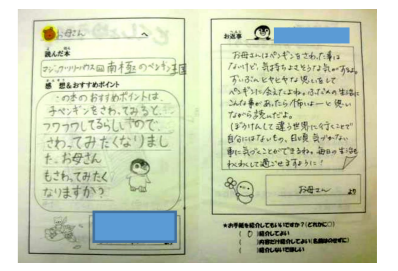 お母さん へ
読んだ本
マジックツリーハウス 南極のペンギン王国
感想&おすすめポイント
この本のおすすめポイントは
子ペンギンをさわってみると、
フワフワしてるらしいので
さわってみたくなりまし
た。お母さん
もさわってみたく
なりますか?
お返事
お母さんはペンギンをさわった事は
ないけど、気持ちよさそうな気がするよ。
ずいぶんヒヤヒヤな思いをして
ペンギンに会えたよね。ふだんの生活に
こんな事があったら怖いよーと思い
ながら読んだよ。
ぼうけんして違う世界に行くことで
自分にはないもの、日頃気がつかない
事に気づくことができるね。毎日の生活も
わくわくして過ごせますように!
お母さん より
★お手紙を紹介してもいいですか?(どれかに○)
( O )紹介してよい
( )内容だけ紹介してよい(名前はのせずに)
( )紹介しないでほしい